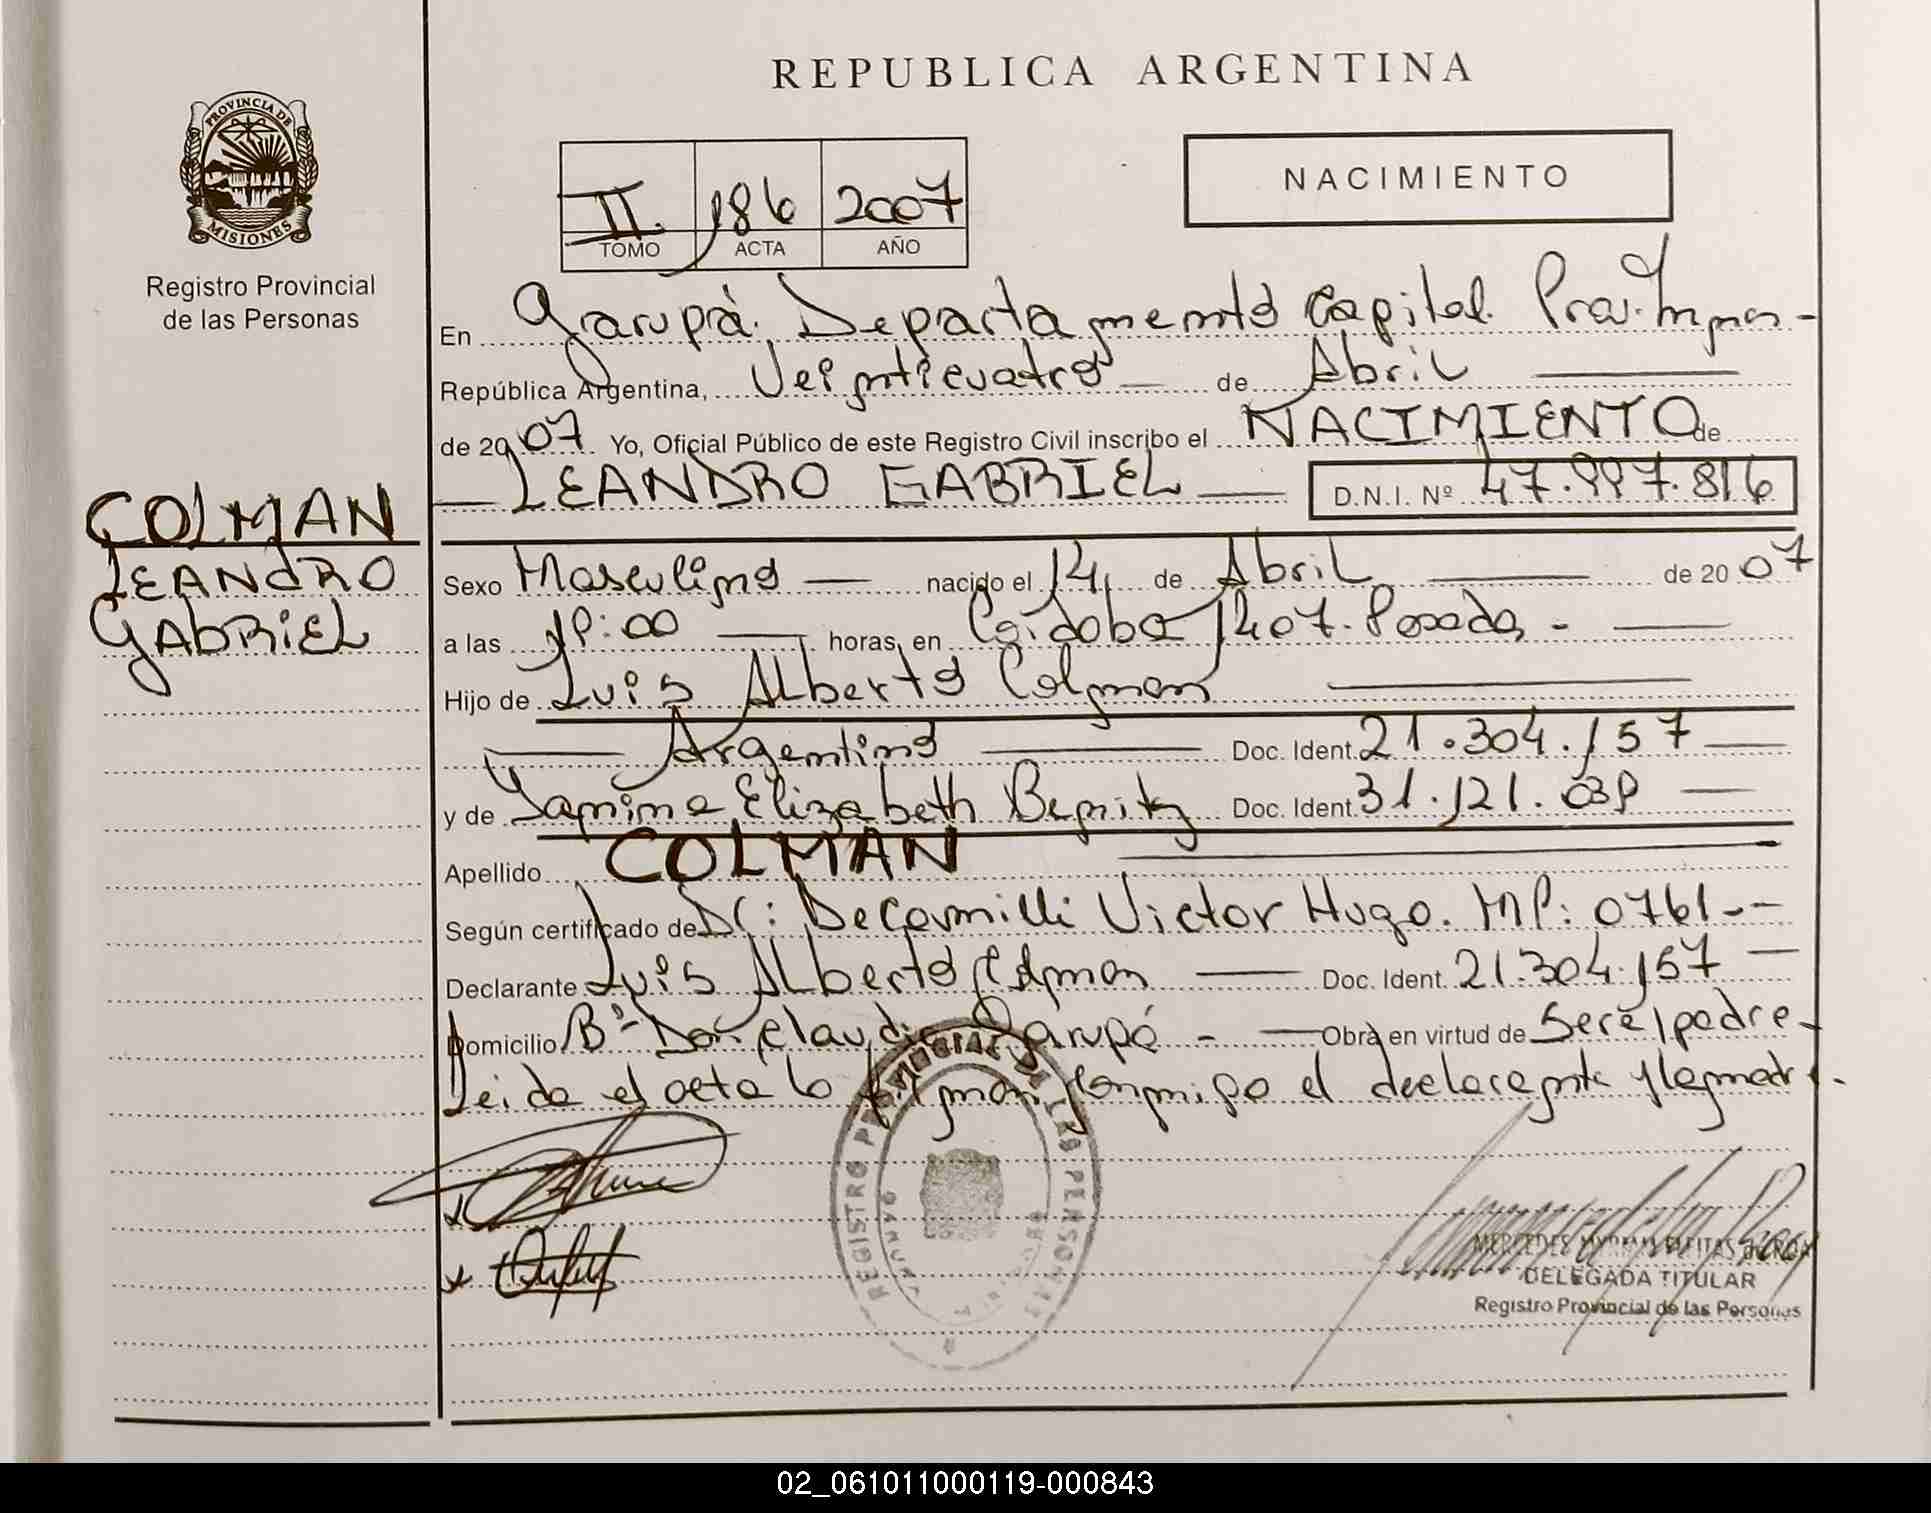 PROVINCIA DE
MISIONES
Registro Provincial
de las Personas
COLMAN
LEANDRO
GABRIEL
REPUBLICA ARGENTINA
II. 186 2007
TOMO ACTA AÑO
NACIMIENTO
En Garupá, Departamento Capital. Prov.
República Argentina, Veinticuatro de Abril
de 2007 Yo, Oficial Público de este Registro Civil inscribo el NACIMIENTO de
LEANDRO GABRIEL D.N.I. Nº 47.997.816
Sexo Masculino nacido el 14 de Abril de 2007
a las 19:00 horas, en Córdoba 1407. Posadas -
Hijo de Luis Alberto Colman
Argentino Doc. Ident. 21.304.157
y de Yanina Elizabeth Doc. Ident. 31.121.039
Apellido COLMAN
Según certificado de Dr: Decamilli Victor Hugo. MP: 0761--
Declarante Luis Alberto Colman Doc. Ident. 21.304.157
Domicilio Bº Don Claudio Garupá - Obra en virtud de Ser el padre-
Leida el acta lo firman conmigo el declarante y la madre.
REGISTRO PROVINCIAL DE LAS PERSONAS
MERCEDES
DELEGADA TITULAR
Registro Provincial de las Personas
02_061011000119-000843